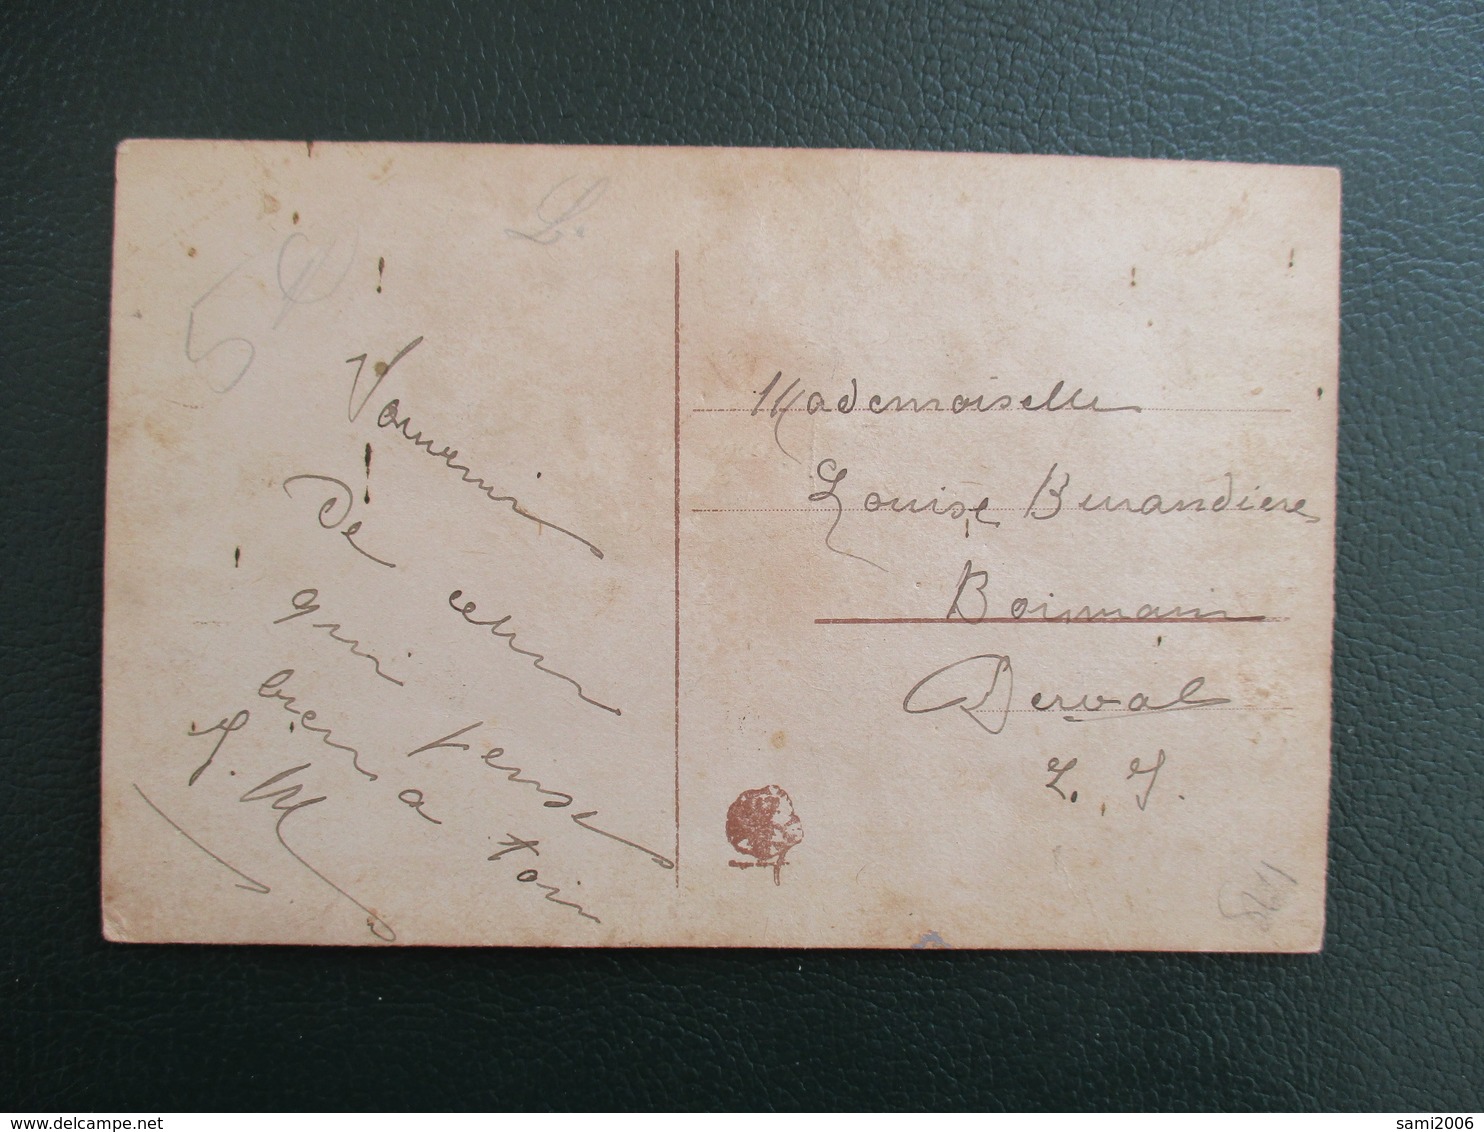 Souvenir
De celui
qui pense
bien a toi
J. M
Mademoiselle
Louise Burandiere
Boismain
Derval
L. I.
L.
sami2006